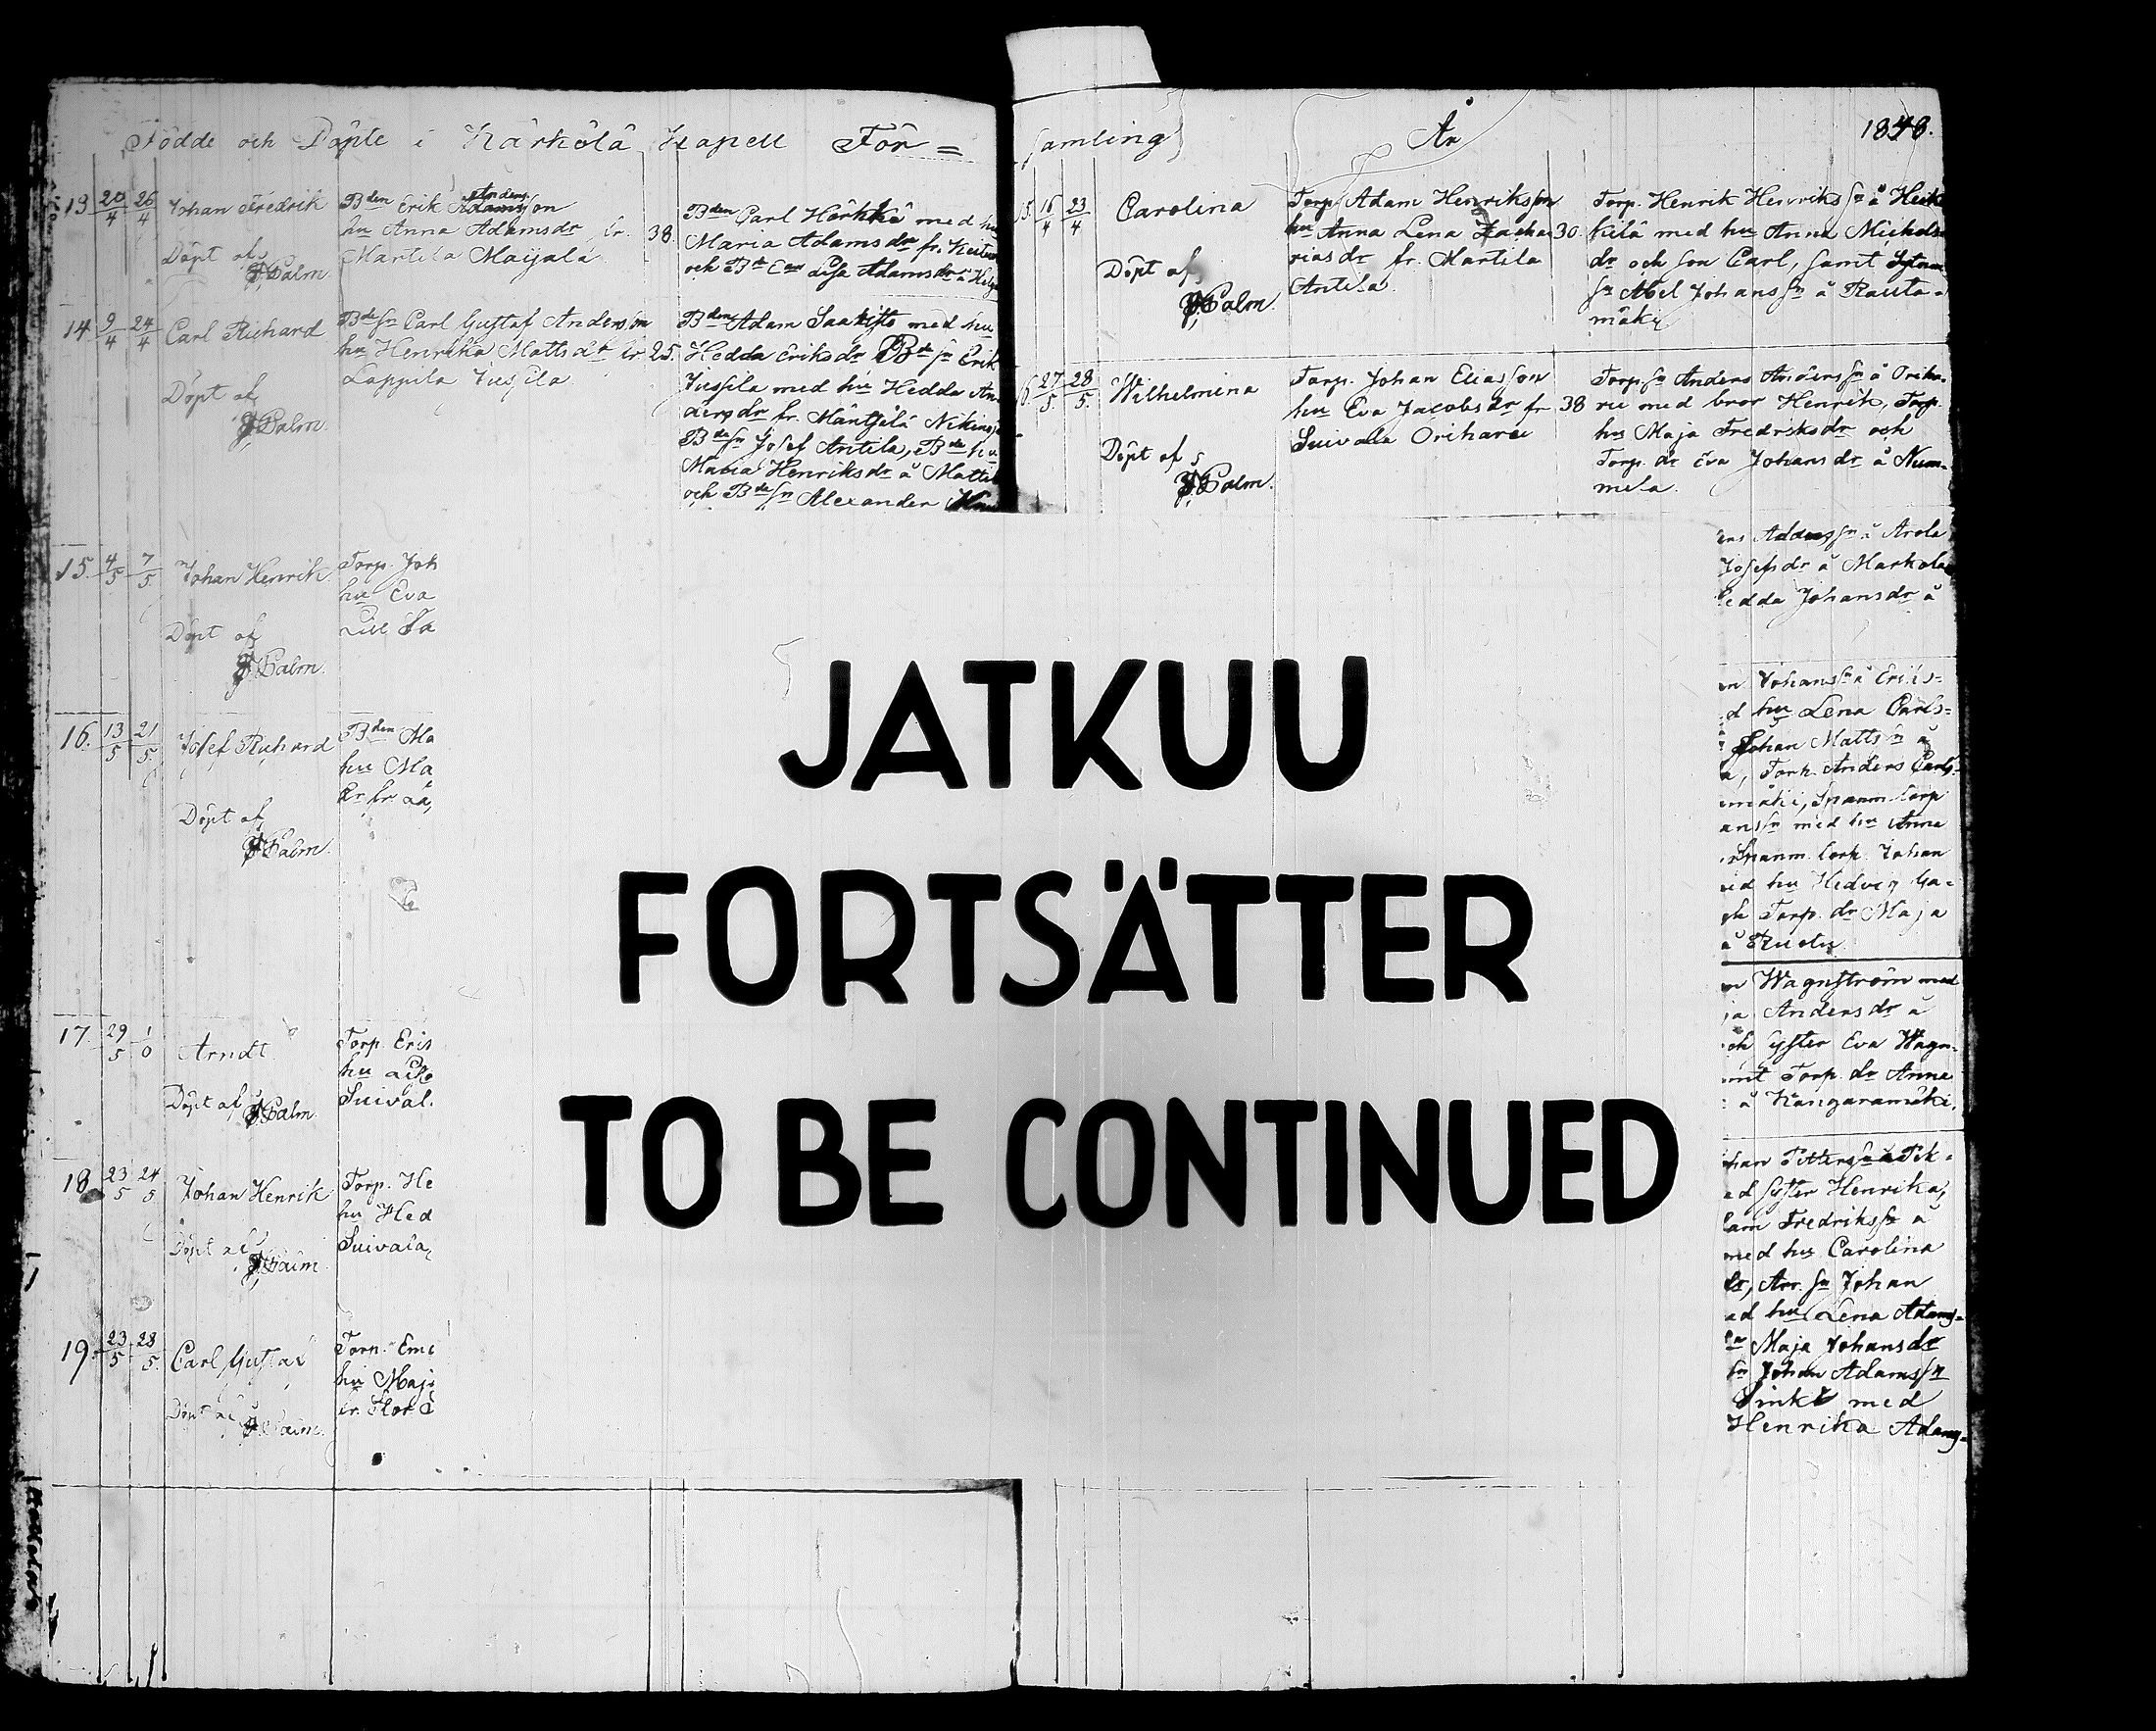 Födde och Döpte i Kärkölä Kapell För=
samling År 1848.
13 20/4 26/4 Johan Fredrik
Döpt af
Palm
Bden Erik Andersson
hu Anna Adamsdr fr. 38.
Martila Maijala
Bden Carl Hörhkö med hu
Maria Adamsdr fr.
och Lisa Adamsdr å
14 9/4 24/4 Carl Richard
Döpt af
Palm.
Bdesn Carl Gustaf Andersson
hu Henrika Mattsdr fr. 25.
Lappila Jussila
Bden Adam Saakisto med hu
Hedda Eriksdr Bdesn Erik
Jussila med hu Hedda An-
dersdr fr. Mäntsälä
Bdesn Josef Antila, Bde hu
Maria Henriksdr å
och Bdesn Alexander
15. 4/5 7/5. Johan Henrik
Döpt af
Palm.
Torp. Joh
hu Eva
Lill
16. 13/5 21/5. Josef Richard
Döpt af
Palm.
Bden Ma
hu Ma
dr fr. La
17. 29/5 Arndt
Döpt af
Palm
Torp. Eri
hu
Suival
18 23/5 24/5 Johan Henrik
Döpt af
Palm
Torp. He
hu Hed
Suivala,
19. 23/5 28/5. Carl Gustaf
Döpt af
Palm.
Torp. Em
hu Maj
fr.
15. 16/4 23/4 Carolina
Döpt af
Palm.
Torp. Adam Henriksson
hu Anna Lena Zacha 30.
rias dr fr. Martila
Antila.
Torp. Henrik Henrikssn å Heik
kilä med hu Anna Michels
dr och son Carl, samt
sn Abel Johanssn å Rauta-
mäki
16. 27/5. 28/5. Wilhelmina
Döpt af
Palm.
Torp. Johan Eliasson
hu Eva Jacobsdr fr 38
Suivala Orihare
Torpsn Anders Anderssn å
med bror Henrik, Torp.
hu Maja Fredriksdr och
Torp. dr Eva Johansdr å Num-
mela.
JATKUU
FORTSÄTTER
TO BE CONTINUED
å Arola
Josefsdr å Markola
edda Johansdr å
n Johanssn å
d hu Lena Carls-
Johan Mattssn å
a, Torp. Anders Carls-
mäki, Spanm. torp
anssn med hu Anna
Spanm. torp. Johan
ed hu Hedvig Ga-
ch Torp. dr Maja
å
n Wagnström med
ja Andersdr å
ch syster Eva Wagn-
mt Torp. dr Anna
å Kangaramäki.
han Petterssn å
ed syster Henrika,
am Fredrikssn å
med hu Carolina
sn Johan
ed hu Lena Adams-
Maja Johansdr
sn Johan Adamssn
med
Henrika Adams-